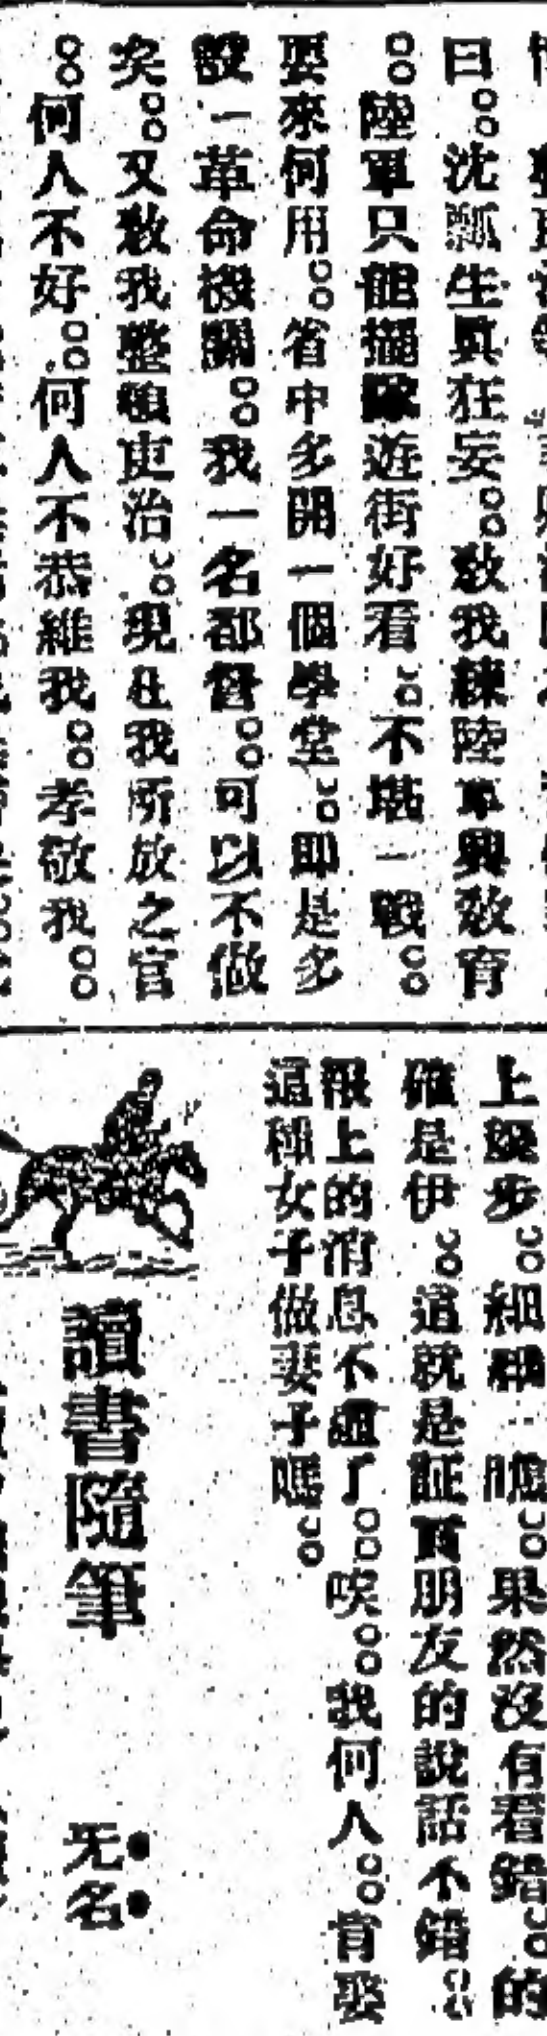 曰。沈瓢生眞狂妄。敎我練陸軍興敎育
。陸軍只能擺隊遊街好看。不堪一戰。
要來何用。省中多開一個學堂。即是多
設一革命機關。我一名都督。可以不做
矣。又敎我整頓吏治。現在我所放之官
。何人不好。何人不恭維我。孝敬我。
上幾步。細細一瞧。果然沒有看錯。的
確是伊。這就是証實朋友的說話不錯。
報上的消息不過了。唉。我何人。肯娶
這種女子做妻子嗎。
讀書隨筆
无名